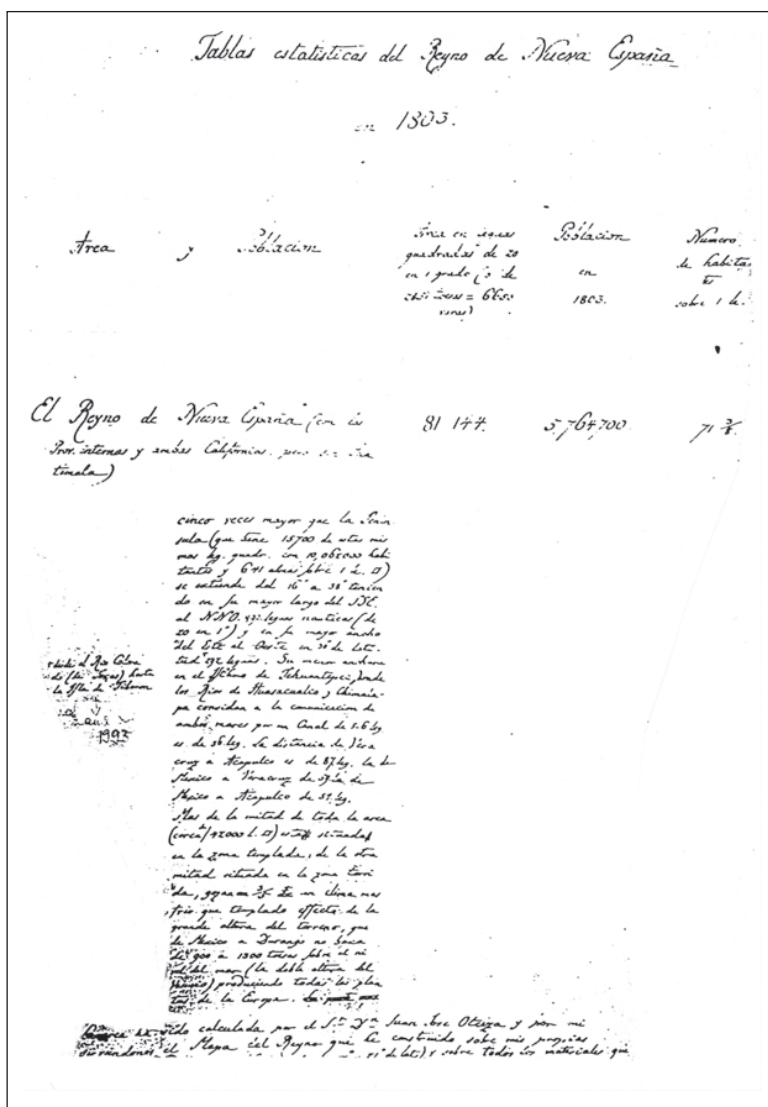 Tablas estatisticas del Reyno de Nueva España
en 1803.
Area y Poblacion
Area en leguas
quadradas de 20
en 1 grado (o de
= 6650
varas)
Poblacion
en
1803.
Numero
de habitan
tes
sobre 1 l.
El Reyno de Nueva España (con las
Prov. internas y ambas Californias, pero sin Gua
temala)
81 144.
5,764,700
71
cinco veces mayor que la Penin
sula (que tiene 15700 de estas mis
mas leg. quadr. con habi
tantes y 641 sobre 1 L. □)
se extiende del 16° a 38° tenien
do en su mayor largo del SSE.
al NNO. leguas nauticas (de
20 en 1°) y en su mayor ancho
del Este al Oeste en 30° de Lati
tud leguas. Su menor anchura
en el Isthmo de Tehuantepec, donde
los Rios de Huasacualco y Chimala
pa convidan a la comunicacion de
ambos mares por un Canal de 5.6 leg
es de 36 leg. La distancia de Vera
cruz a Acapulco es de leg. la de
Mexico a Veracruz de 57 la de
Mexico a Acapulco de leg.
Mas de la mitad de toda la area
(circa 42000 l. □) situada
en la zona templada, de la otra
mitad situada en la zona Torri
da, gozan de un clima mas
frio que templado effecto de la
grande altura del terreno, que
de Mexico a Durango no baxa
de 900 a 1300 toesas sobre el ni
vel del mar (la doble altura del
Vesuvio) produciendo todas las plan
tas de la Europa.
desde el Rio Colora
do (de Texas) hasta
la Isla de Tiburon
1993
calculada por el Sr. Dn Juan Jose Oteiza y por mi
el Mapa del Reyno que he construido sobre mis propias
de lat.) y sobre todos los materiales que